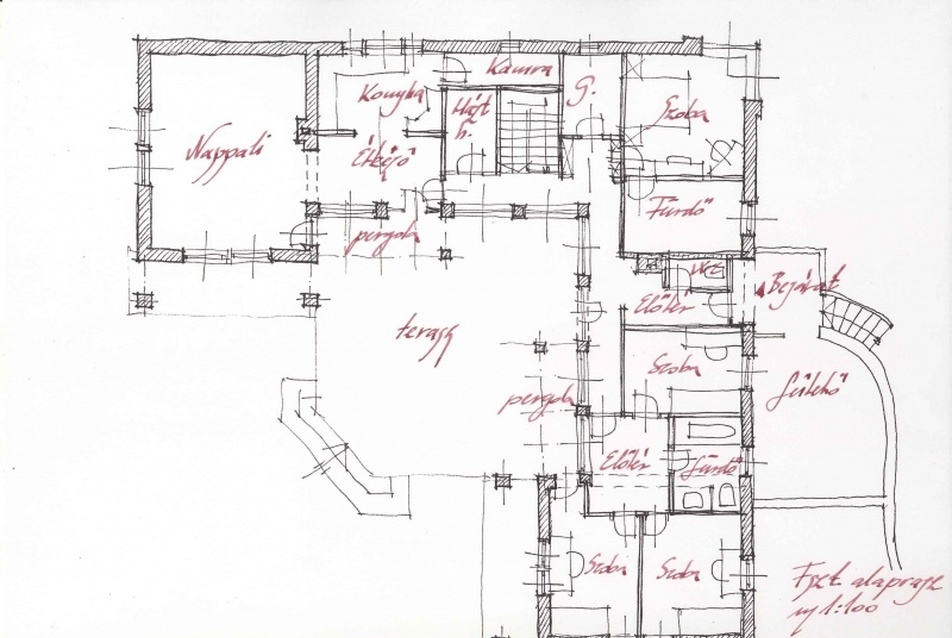 Kamra
Konyha
G.
Házt.
h.
Szoba
Nappali
Étkező
Fürdő
pergola
WC
Bejárat
Előtér
terasz
Szoba
pergola
Előtér
fürdő
Szoba
Szoba
Fszt. alaprajz
m 1:100